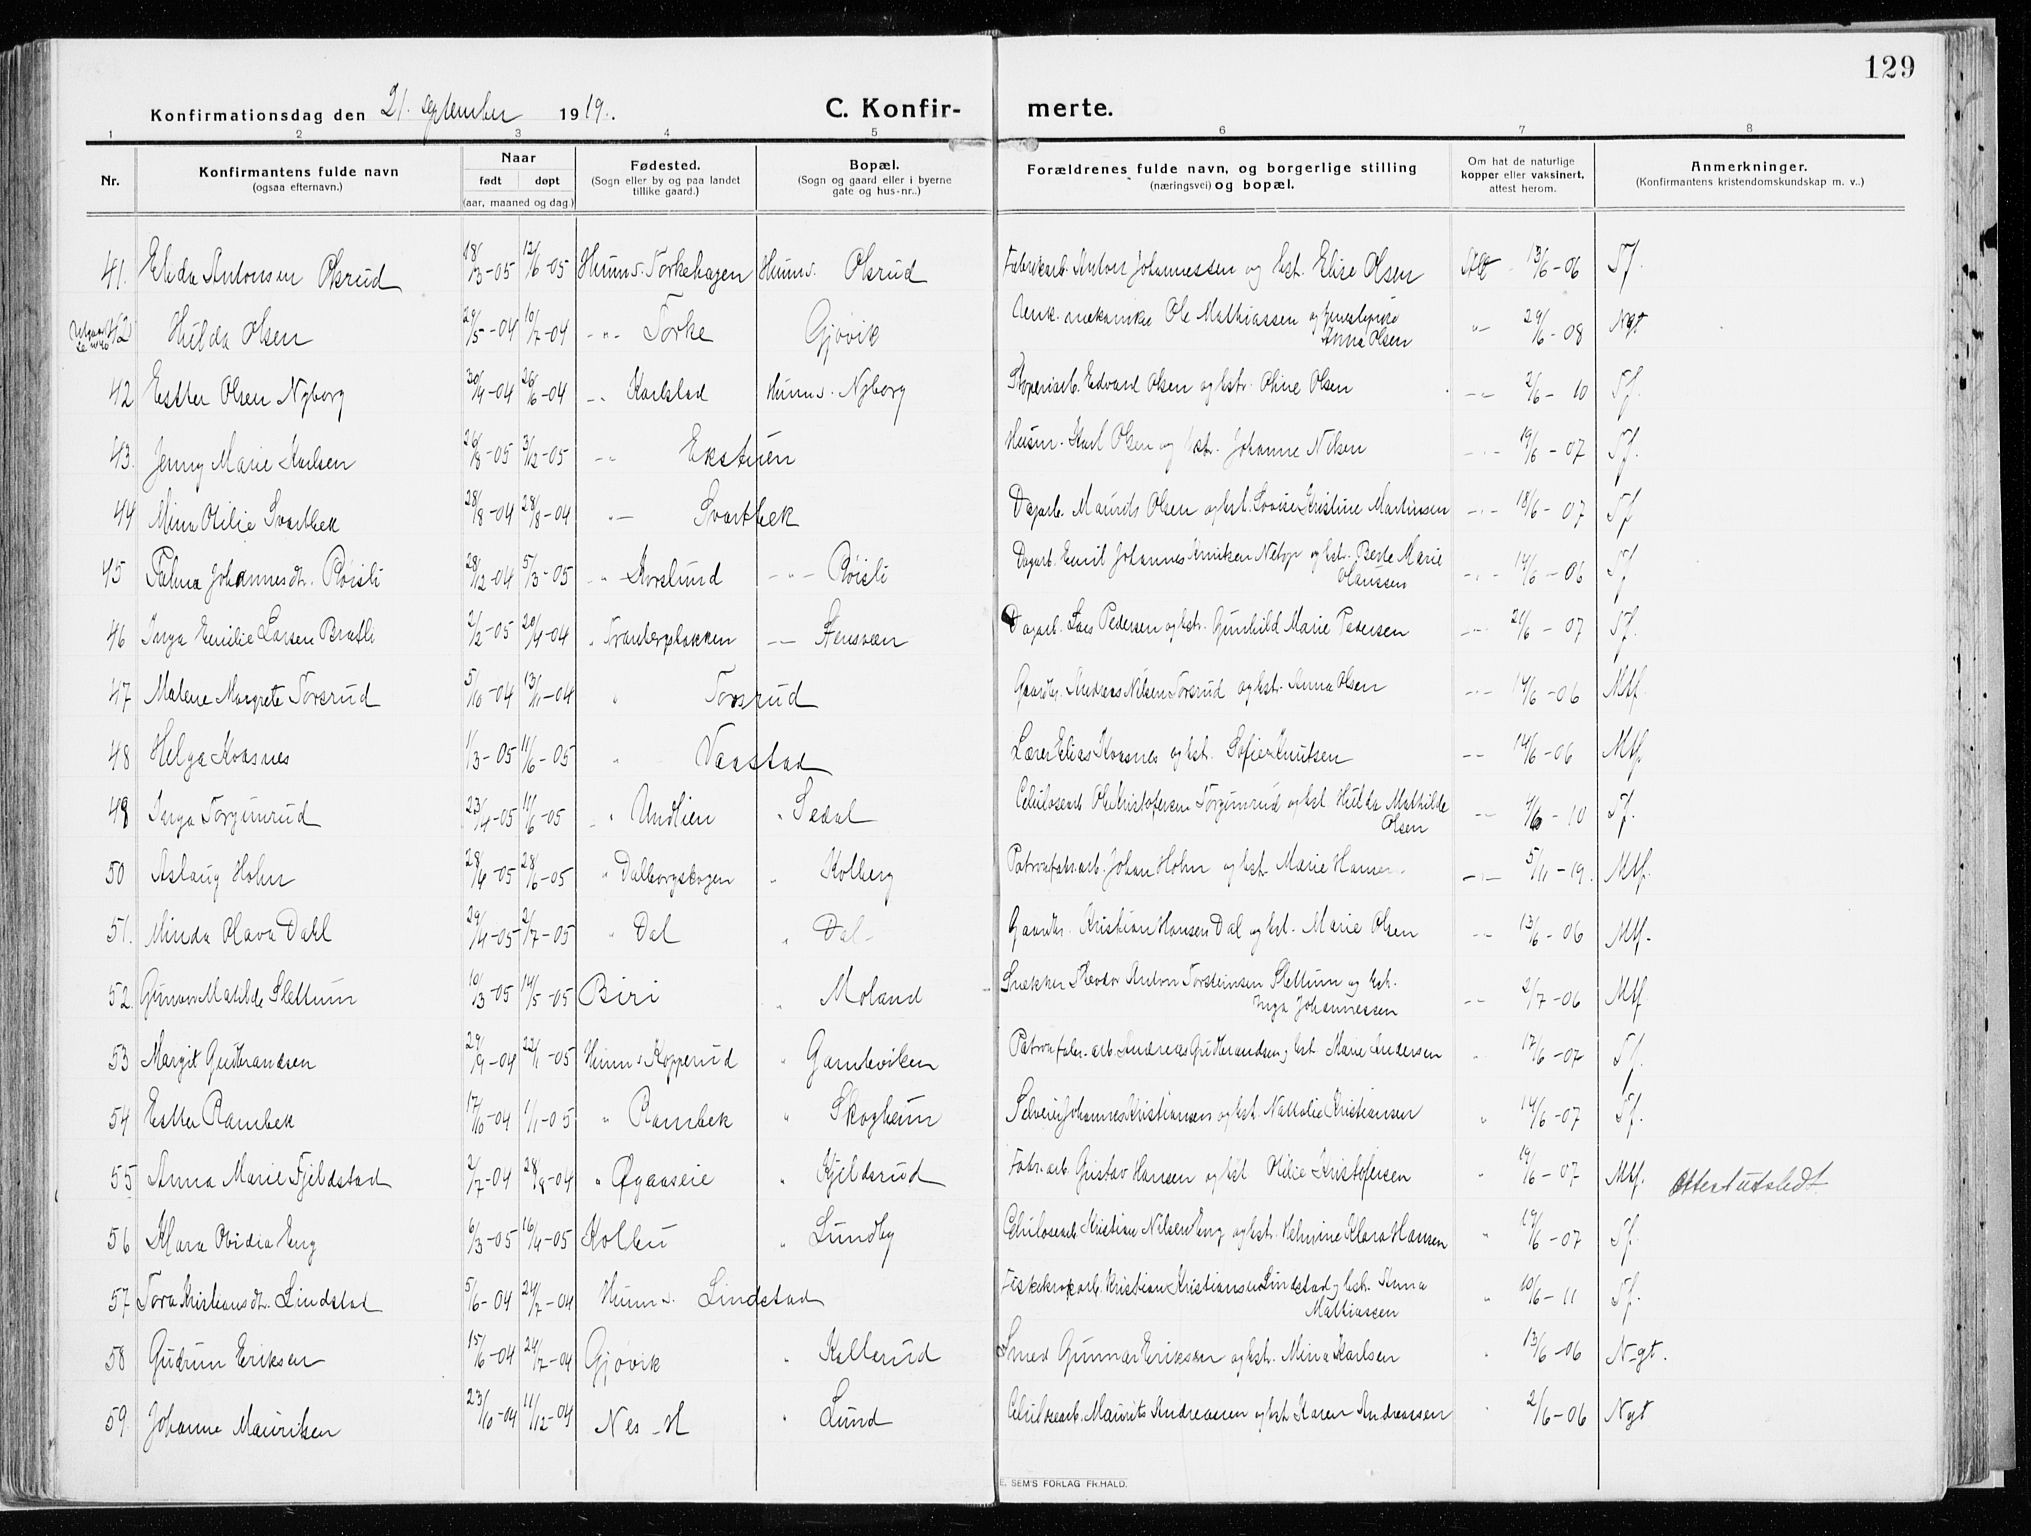 129
Konfirmationsdag den 21. september 1919.
C. Konfir- merte.
1 2 3 4 5 6 7 8
Nr.
Konfirmantens fulde navn
(ogsaa efternavn.)
Naar
født døpt
(aar, maaned og dag.)
Fødested.
(Sogn eller by og paa landet
tillike gaard.)
Bopæl.
(Sogn og gaard eller i byerne
gate og hus-nr..)
Forældrenes fulde navn, og borgerlige stilling
(næringsvei) og bopæl.
Om hat de naturlige
kopper eller vaksinert,
attest herom.
Anmerkninger.
(Konfirmantens kristendomskundskap m. v..)
41. Elida Antonsen Olsrud 18/3-05 12/6-05 Hunns. Torkehagen Hunns. Olsrud Fabrikarb. Anton Johannessen og hst. Elise Olsen Att - 13/6-06 Tf.
42 Hulda Olsen 29/5-04 10/7-04 -"- Torke Gjøvik Ole Mathiassen og Anna Olsen " 29/6-08 Ngt
42 Esther Olsen Nyborg 30/4-04 26/6-04 -"- Karlstad Hunns. Nyborg Støperiarb. Edvard Olsen og hst. Oline Olsen -"- 2/6-10 Tf.
43. Jenny Marie Karlsen 26/8-05 3/12-05 -"- Ekstuen Husm. Karl Olsen og hst. Johanne Nilsen -"- 19/6-07 Tf.
44 Mina Otilie Svartbek 28/8-04 -"- Svartbek Dagarb. Maurits Olsen og hst. Lovise Kristine Martinsen -"- 18/6-07 Tf
45 Palma Johannesdtr. Røisli 28/12-04 5/3-05 " Korslund -"- Røisli Dagarb. Emil Johannes og hst. Berte Marie Olaussen -"- 14/6-06 Tf
46 Inga Emilie Larsen Bratli 2/2-05 20/4-04 " -"- Stensveen Dagarb. Lars Pedersen og hst. Gunhild Marie Pedersen -"- 20/6-07 Tf.
47 Malene Margrete Torsrud 5/10-04 13/11-04 " Torsrud Gaardbr. Andreas Nilsen Torsrud og hst. Anna Olsen -"- 14/6-06 Mtf.
48 Helga Kvasnes 1/3-05 11/6-05 " Vaastad Lærer Elias Kvasnes og hst. Sofie Knutsen -"- 14/6-06 Mtf.
49 Inga Torgunrud 23/4-05 11/6-05 " Undlien " Sedal Celulosearb. Ole Kristofersen Torgunrud og hst. Hulda Mathilde Olsen -"- 4/6-10 Tf.
50 Aslaug Hohn 28/4-05 28/6-05 " Dalborgskogen " Kolberg Patronfabr.arb. Johan Hohn og hst. Marie Hansen -"- 5/11-19. Mtf.
51. Minda Olava Dahl 29/4-05 2/7-05 " Dal " Dal Gaardbr. Kristian Hansen Dal og hst. Marie Olsen -"- 13/6-06 Mtf.
52. Gunvor Matilde Slettum 10/3-05 14/5-05 Biri " Moland Snekker Theodor Anton Torsteinsen Slettum og hst. Inga Johannessen -"- 2/7-06 Mtf
53 Margit Gudbrandsen 29/9-04 22/1-05 Hunns Kopperud " Gamleviken Patronfabr.-arb. Andreas Gudbrandsen og hst. Marie Andersen " 17/6-07 Tf.
54 Esther Rambek 17/10-04 1/1-05 " Rambek " Skogheim Johannes Kristiansen og hst. Nathalie Kristiansen " 14/6-07 Tf.
55 Anna Marie Fjeldstad 2/7-04 28/8-04 " Øgaaseie " Kjeldsrud Fabr.arb. Gustav Hansen og hst. Kristofersen " 19/6-07 Mtf. Attest utstedt
56 Klara Ovidia Eng 6/3-05 16/4-05 Kolbu " Lundby Celulosearb. Kristian Nilsen Eng og hst. Helmine Klara Hansen " 19/6-07 Tf.
57 Tora Kristiansdtr. Lindstad 5/6-04 24/7-04 Hunns. Lindstad Fiskekrokarb. Kristian Kristiansen Lindstad og hst. Anna Mathiassen " 10/6-11 Tf.
58 Gudrun Eriksen 15/6-04 24/7-04 Gjøvik " Kallerud Smed Gunnar Eriksen og hst. Mina Karlsen " 13/6-06 Ngt.
59. Johanne Mauritsen 23/10-04 11/12-04 Nes - H " Lund Celulosearb. Maurits Andreassen og hst. Karen Andreassen " 2/6-06 Ngt
E. SEM'S FORLAG FR.HALD.